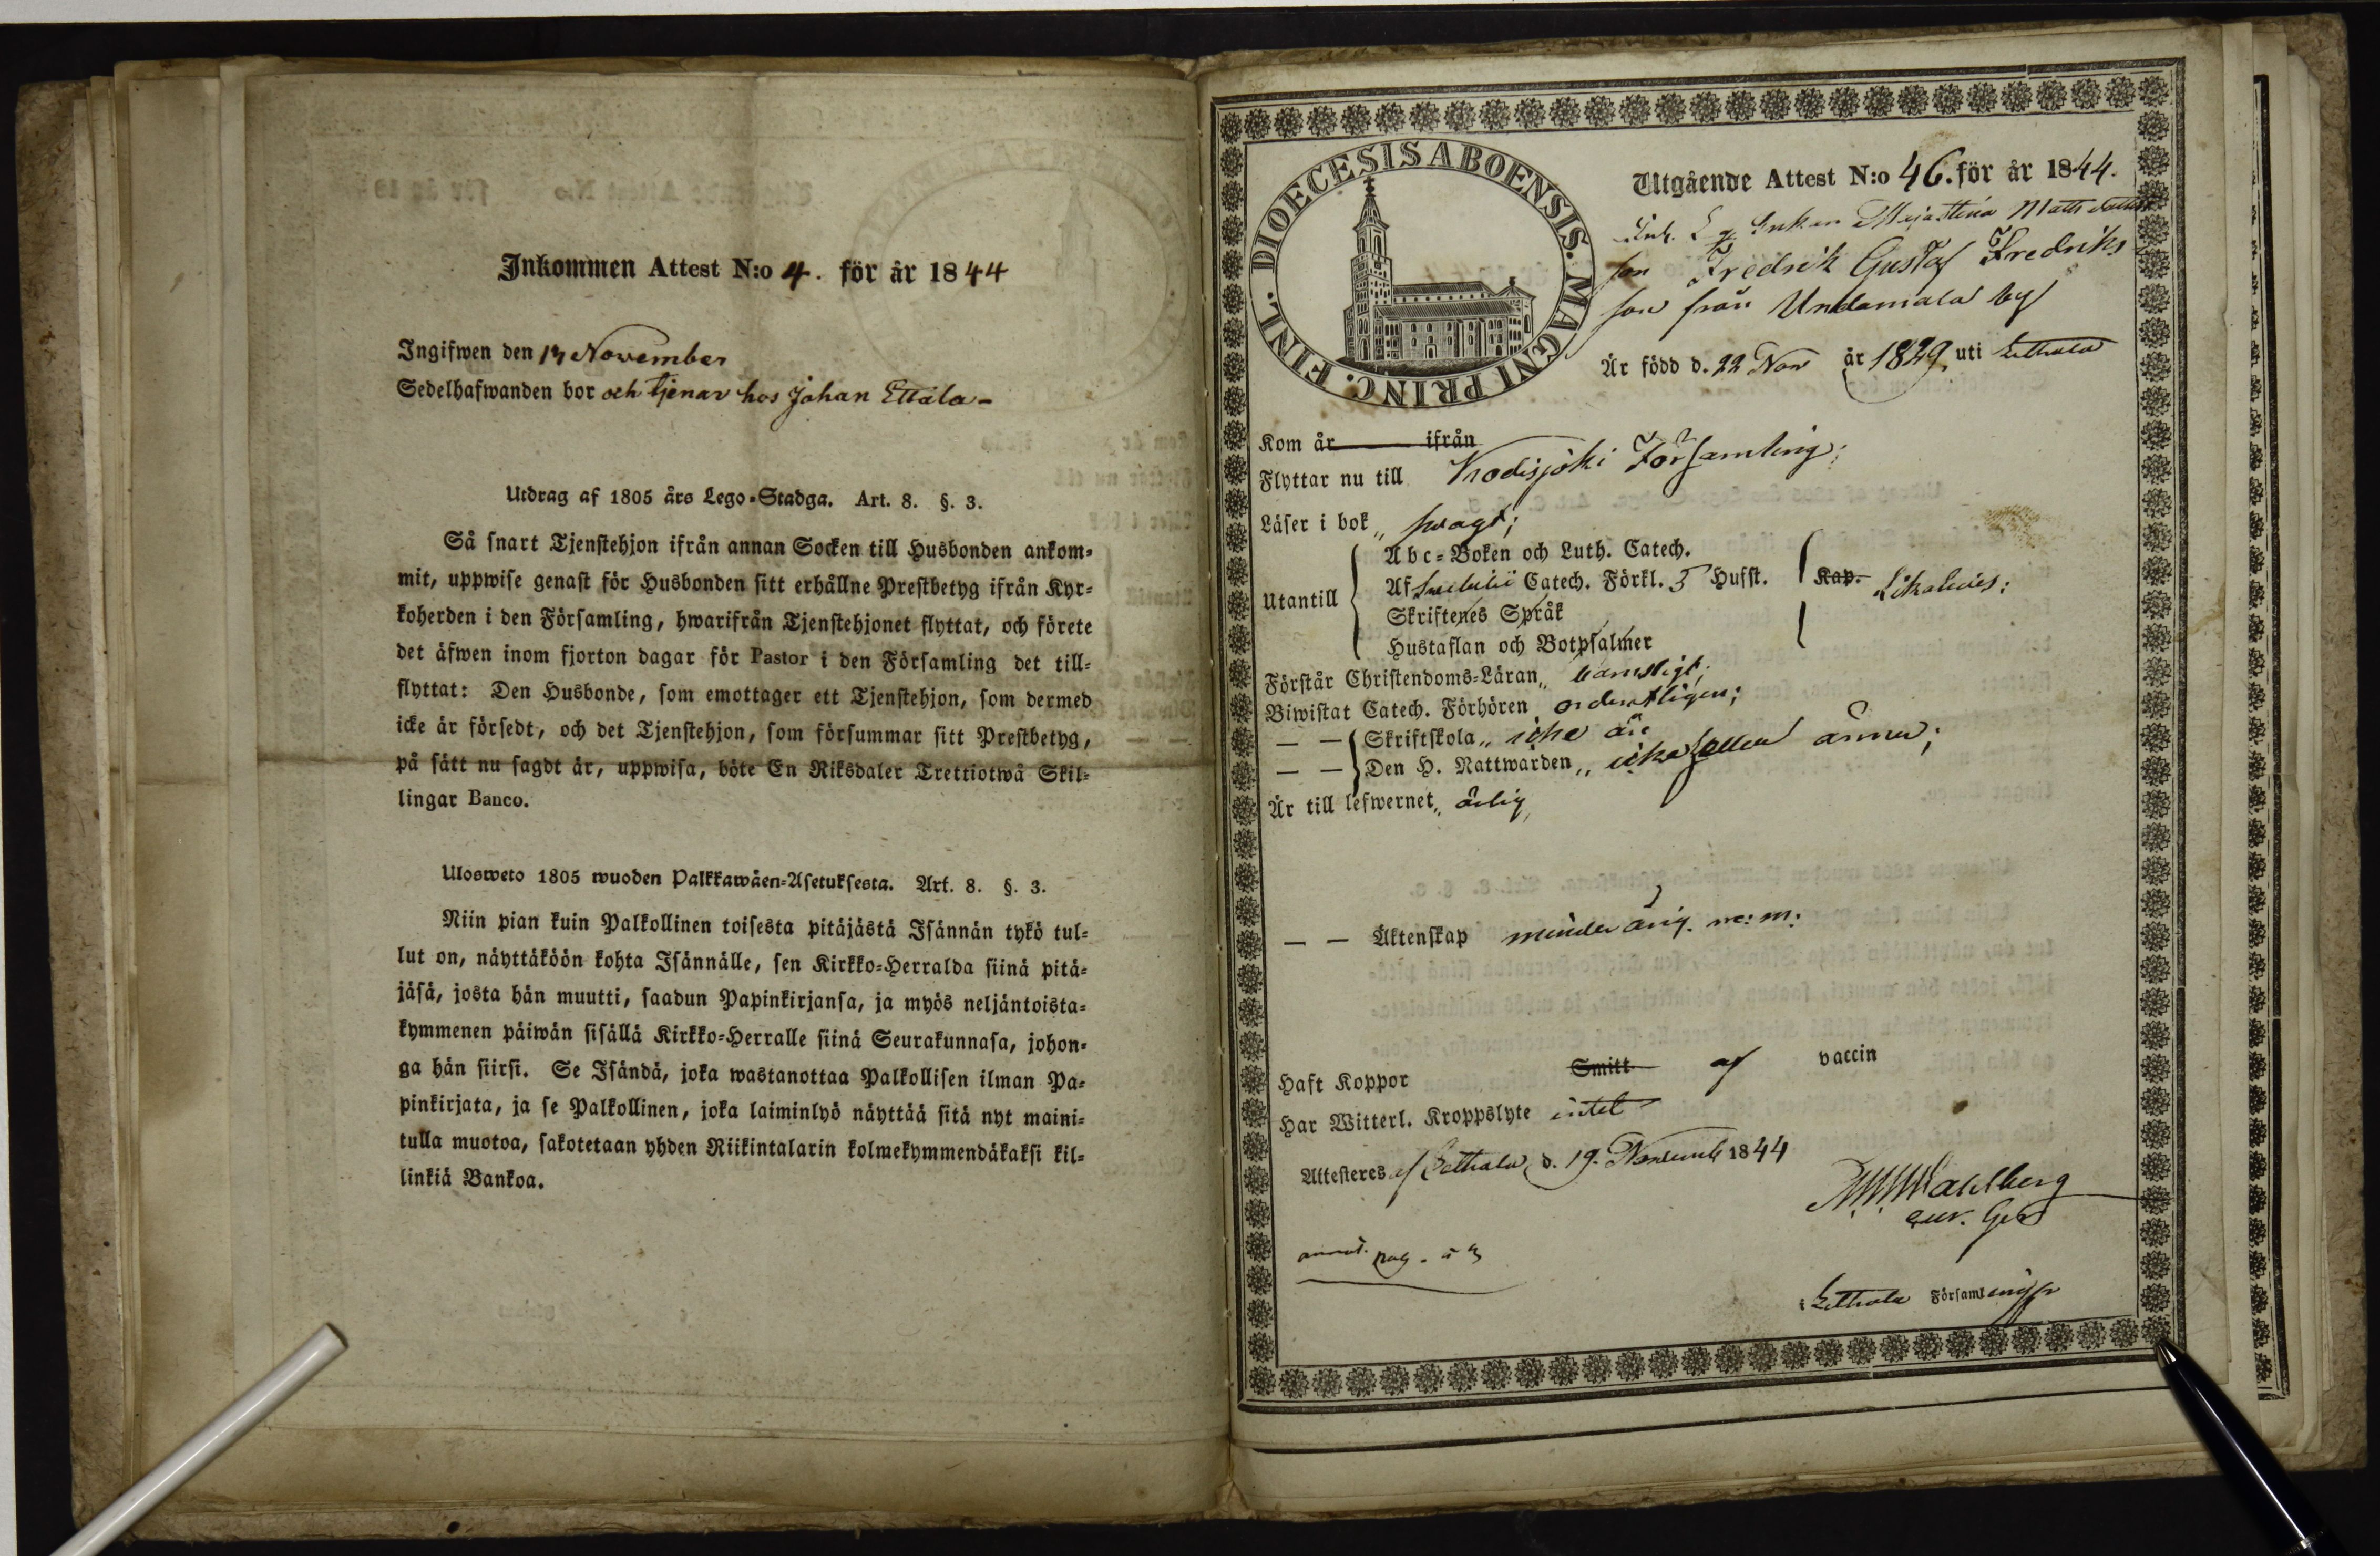 Inkommen Attest N:o 4. för år 1844
Ingifwen den 19 November
Sedelhafwanden bor och tjenar hos Johan Ettala-
Utdrag af 1805 års Lego-Stadga. Art. 8. §. 3.
Så snart Tjenstehjon ifrån annan Socken till Husbonden ankom-
mit, uppwise genast för Husbonden sitt erhållne Prestbetyg ifrån Kyr-
koherden i den Församling, hwarifrån Tjenstehjonet flyttat, och förete
det äfwen inom fjorton dagar för Pastor i den Församling det till-
flyttat: Den Husbonde, som emottager ett Tjenstehjon, som dermed
icke är försedt, och det Tjenstehjon, som försummar sitt Prestbetyg,
på sätt nu sagdt är, uppwisa, böte En Riksdaler Trettiotwå Skil-
lingar Banco.
Ulosweto 1805 wuoden Palkkawäen-Asetuksesta. Art. 8. §. 3.
Niin pian kuin Palkollinen toisesta pitäjästä Isännän tykö tul-
lut on, näyttäköön kohta Isännälle, sen Kirkko-Herralda siinä pitä-
jäsä, josta hän muutti, saadun Papinkirjansa, ja myös neljäntoista-
kymmenen päiwän sisällä Kirkko-Herralle siinä Seurakunnasa, johon-
ga hän siirsi. Se Isändä, joka wastanottaa Palkollisen ilman Pa-
pinkirjata, ja se Palkollinen, joka laiminlyö näyttää sitä nyt maini-
tulla muotoa, sakotetaan yhden Riikintalarin kolmekymmendäkaksi kil-
linkiä Bankoa.
DIOECESIS ABOENSIS. MAGNI PRINC. FINL.
Utgående Attest N:o 46. för år 1844.
Enkan Maja Stina Matts dotters
son Fredrik Gustaf Fredriks
son från Undamala by
Är född d. 22 Nov år 1829 uti Letthala
Kom år ifrån
Flyttar nu till Kodisjoki Församling;
Läser i bok „ swagt;
Utantill
Abc-Boken och Luth. Catech.
Af Swebilii Catech. Förkl. 5 Hufst. Kap. Likaledes:
Skriftenes Språk
Hustaflan och Botpsalmer
Förstår Christendoms-Läran „ barnsligt;
Biwistat Catech. Förhören ordentligen;
— — Skriftskola „ icke än
— — Den H. Nattwarden „ icke heller ännu;
Är till lefwernet „ ärlig
— — Äktenskap minderårig. m: m:
Haft Koppor Smitt af vaccin
Har Witterl. Kroppslyte intet
Attesteres af Letthala d. 19. Novemb 1844
Wahlberg
annot. pag.
i Letthala Församling